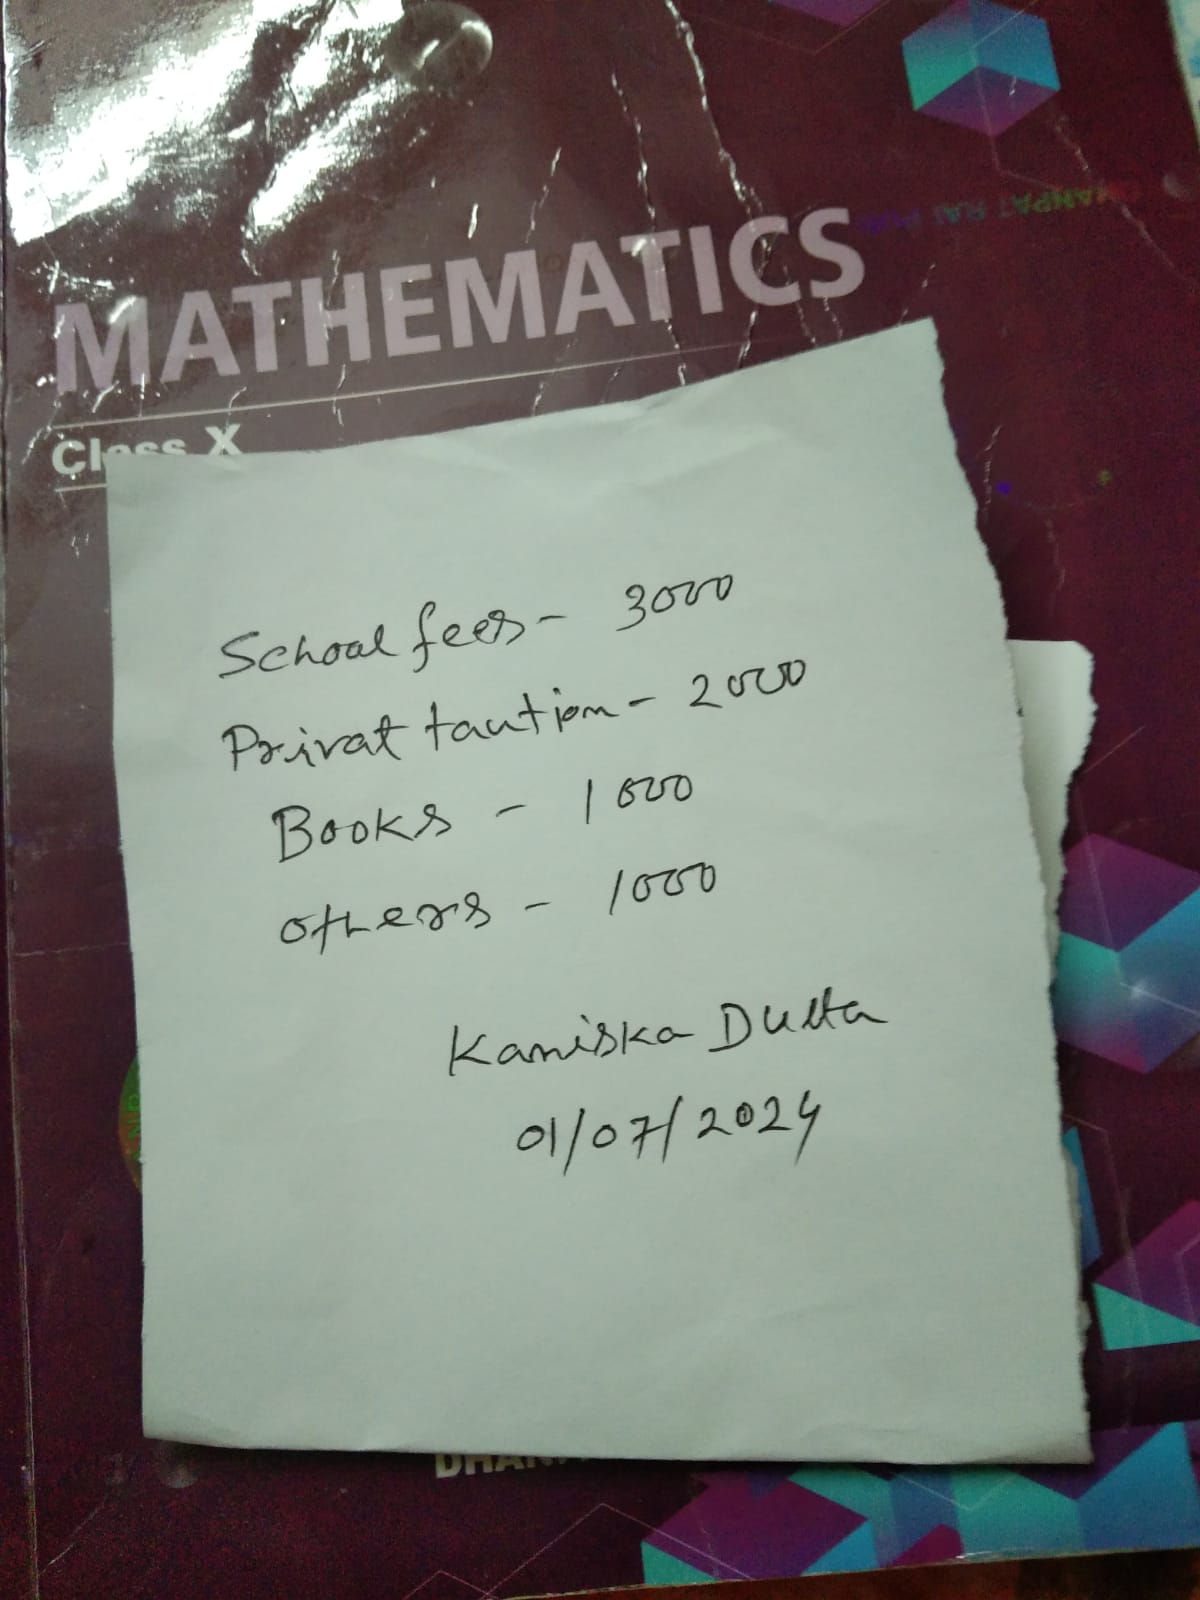 MATHEMATICS
Class X
School fees - 3000
Privat taution - 2000
Books - 1000
others - 1000
Kaniska Dutta
01/07/2024